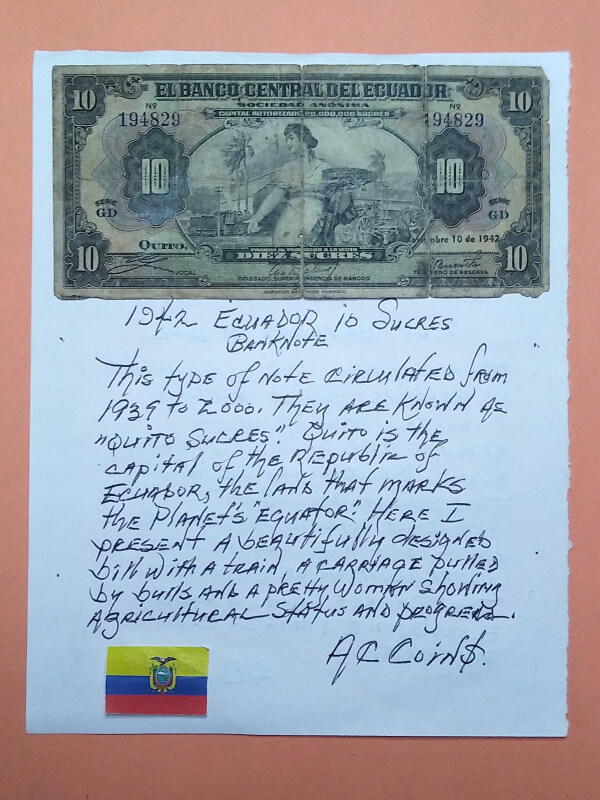 10 EL BANCO CENTRAL DEL ECUADOR 10
SOCIEDAD ANÓNIMA
CAPITAL AUTORIZADO 20,000,000 SUCRES
Nº Nº
194829 194829
10 10
SERIE SERIE
GD GD
QUITO, mbre 10 de 1942
10 DIEZ SUCRES 10
VOCAL DELEGADO SUPERINTENDENCIA DE BANCOS DE RESERVA
1942 ECUADOR 10 SUCRES
BANKNOTE
This type of note circulated from
1939 to 2000. They are known as
"QUITO SUCRES". Quito is the
capital of the Republic of
ECUADOR, the land that marks
the Planet's "EQUATOR". Here I
present a beautifully designed
bill with a train, a carriage pulled
by bulls and a pretty woman showing
agricultural status and progress.
AC Coin$.